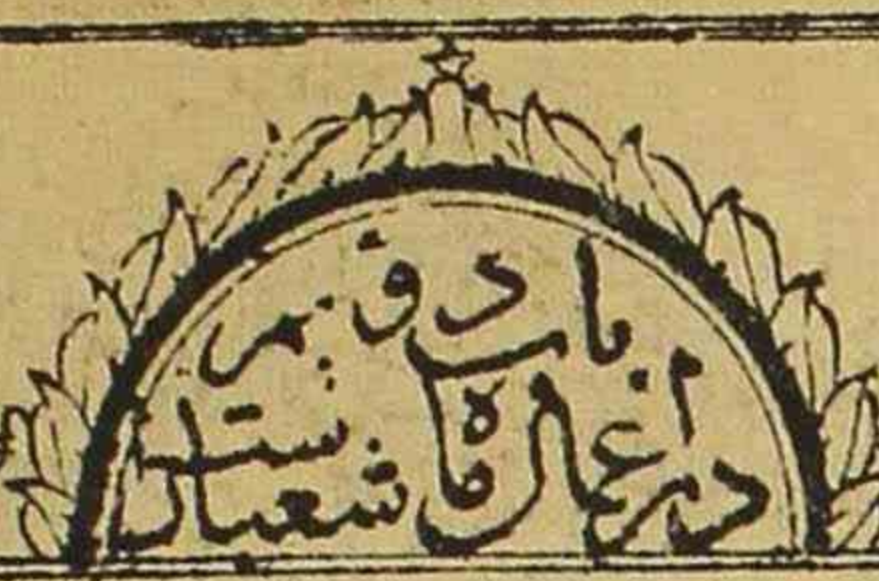 باب دوم
در اعمال ماه شعبان است